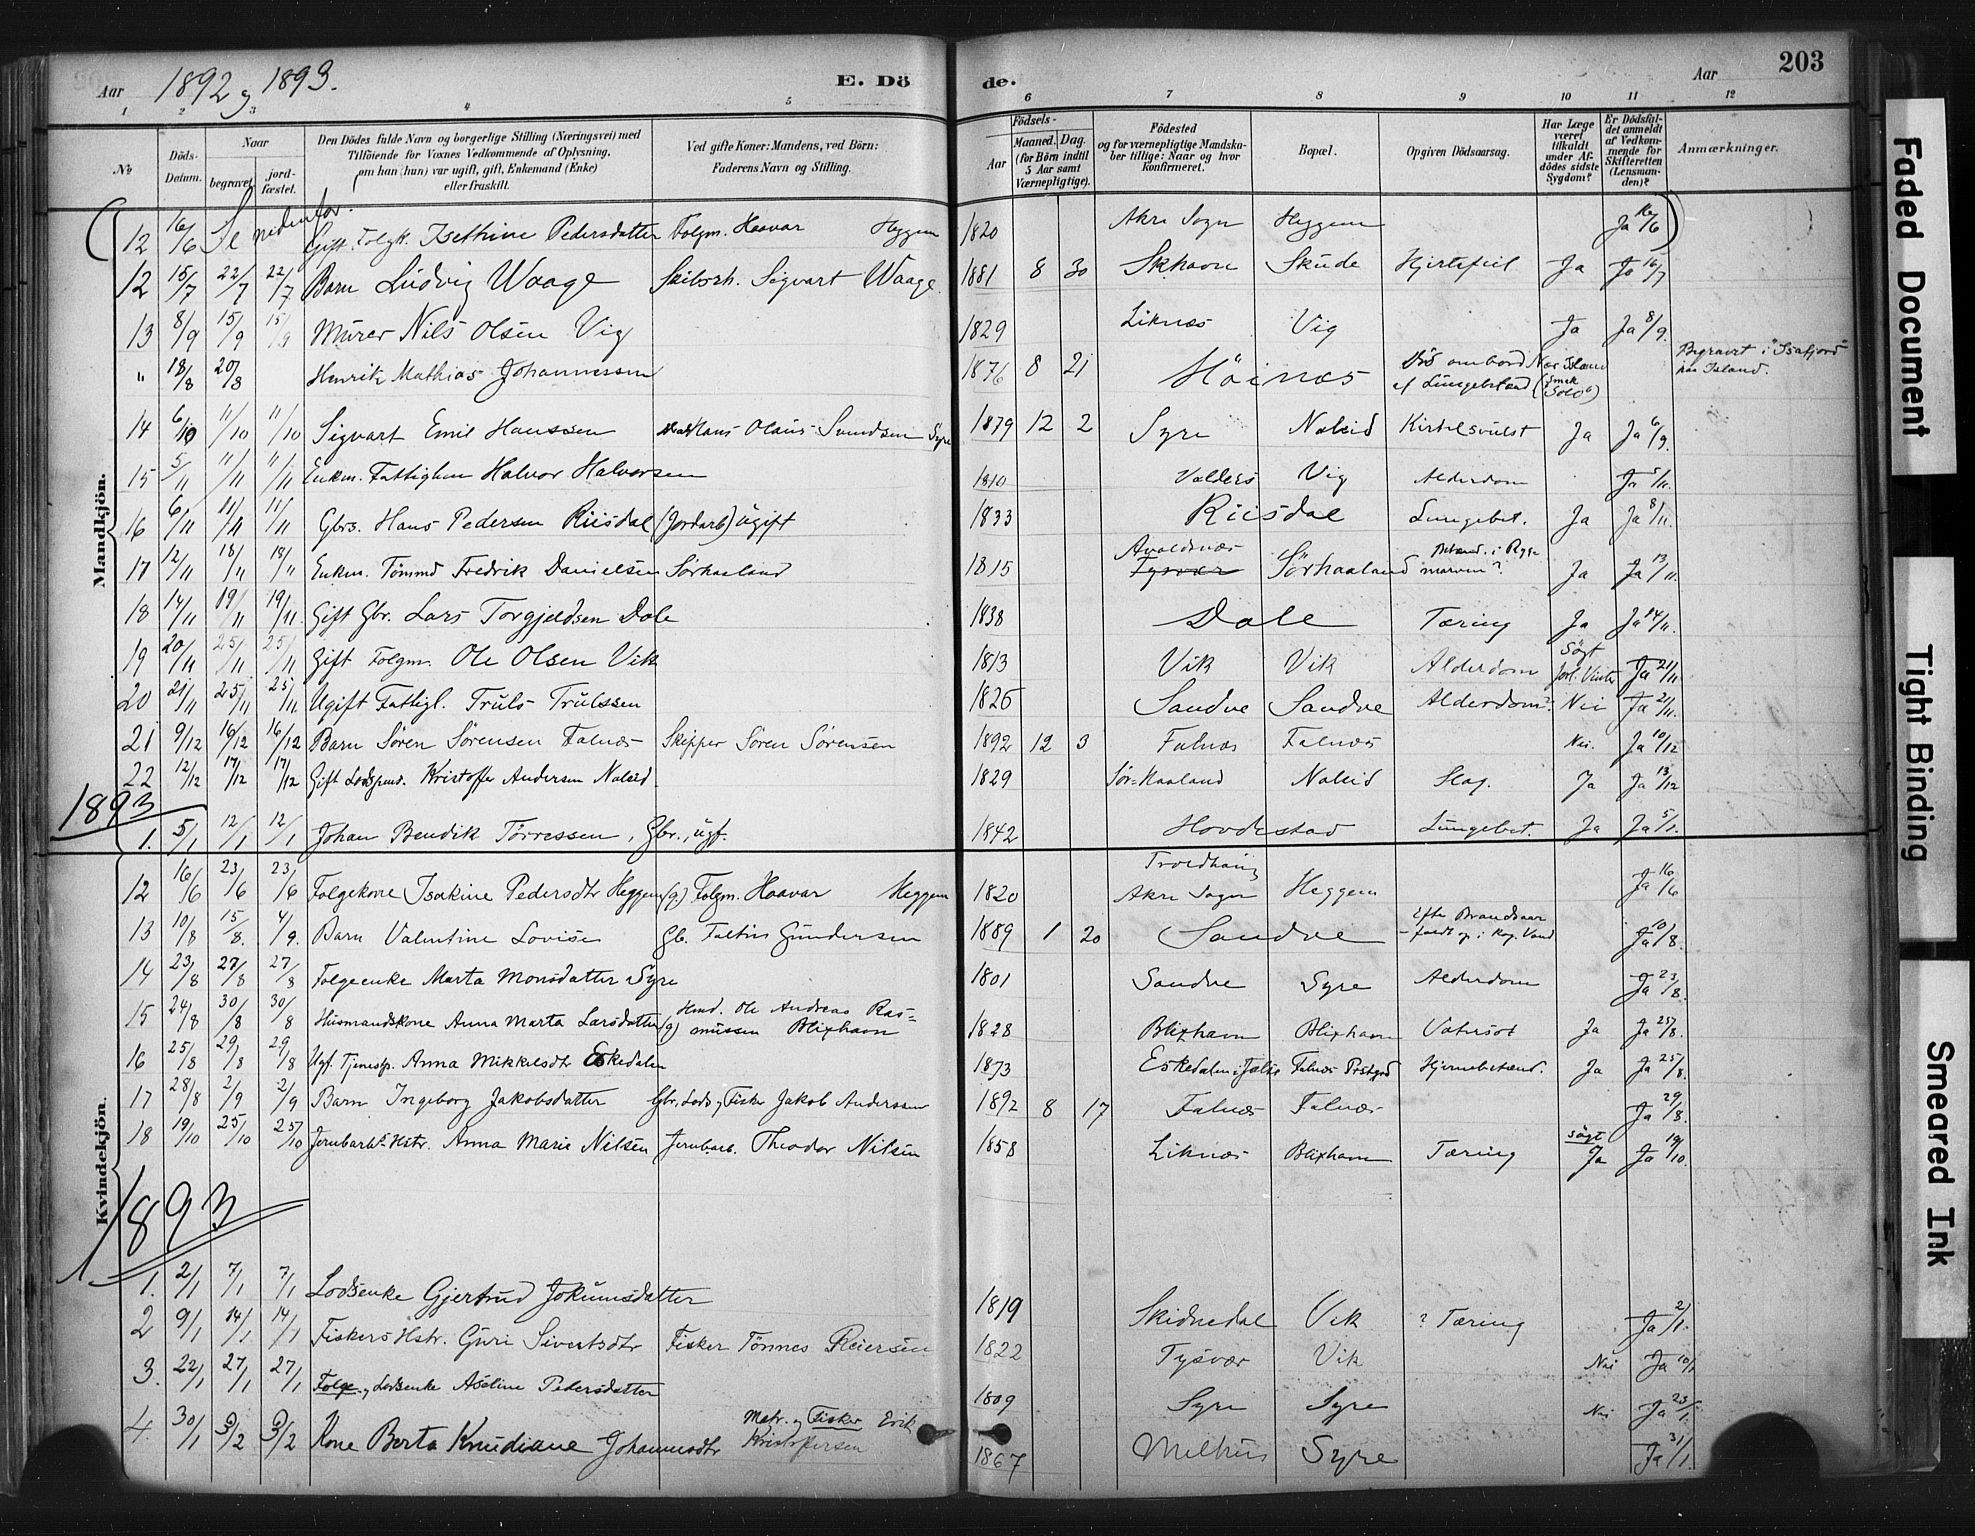 Aar 1892 og 1893. E. Dö
de. Aar 203
1 2 3 4 5
6 7 8 9 10 11 12
No
Döds-Datum.
Naar
begravet
jord-fæstet.
Den Dödes fulde Navn og borgerlige Stilling (Næringsvei) med
Tilföiende for Voxnes Vedkommende af Oplysning,
om han (hun) var ugift, gift, Enkemand (Enke)
eller fraskilt.
Ved gifte Koner: Mandens, ved Börn:
Faderens Navn og Stilling.
Födsels-
Aar
Maaned. Dag.
(for Börn indtil
5 Aar samt
Værnepligtige).
Födested
og for værnepligtige Mandska-
ber tillige: Naar og hvor
konfirmeret.
Bopæl.
Opgiven Dödsaarsag.
Har Læge
været
tilkaldt
under Af-
dödes sidste
Sygdom?
Er Dödsfal-
det anmeldt
af Vedkom-
mende for
Skifteretten
(Lensman-
den)?
Anmærkninger.
Mandkjön.
12 16/6 Se nedenfor. Gift Folgk. Isethrine Pedersdatter Folgm. Haavar Heggem 1820 Akre Sogn Heggem Ja 16/6
12 15/7 22/7 22/7 Barn Ludvig Waage Skibsrh. Sigvart Waage. 1881 8 30 Skhavn Skude Hjertefeil Ja Ja 16/7
13 8/9 15/9 15/9 Murer Nils Olsen Vig 1829 Liknes Vig Ja Ja 8/9.
" 18/8 20/8 Henrik Mathias Johannessen 1876 8 21 Höines Död ombord Nær Island
af Lungebetænd (Smak "Solo") Begravet i "Isafjord"
paa Island.
14 6/10 11/10 11/10 Sigvart Emil Hanssen Hans Olaus Svendsen Syre 1879 12 2 Syre Naleid Kirtelsvulst Ja Ja 6/9.
15 5/11 11/11 11/11 Enkm. Fattiglem Halvor Halvorsen 1810 Valders Vig Alderdom Ja 5/11.
16 6/11 11/11 11/11 Gbrs. Hans Pedersen Riisdal (Jordarb) ugift 1833 Riisdal Lungebet. Ja Ja 8/11.
17 12/11 18/11 18/11 Enkm. Tömmd Fredrik Danielsen Sörhaaland 1815 Avaldsnes
Tysvær Sörhaaland Betænd. i Ryg-
marven? Ja Ja 13/11.
18 14/11 19/11 19/11. Gift Gbr. Lars Torgjeldsen Dale 1838 Dale Tæring Ja Ja 14/11.
19 20/11 25/11 25/11 Gift Folgm. Ole Olsen Vik 1813 Vik Vik Alderdom Sögt
forl. Vinter Ja 21/11
20 21/11 25/11 25/11. Ugift Fattigl. Truls Trulssen 1826 Sandve Sandve Alderdom? Nei Ja 21/11.
21 9/12 16/12 16/12 Barn Sören Sörensen Falnes Skipper Sören Sörensen 1892 12 3 Falnes Falnes Nei. Ja 10/12
22 12/12 17/12 17/12 Gift Lodsgmd. Kristoffer Andersen Naleid. 1829 Sör-Haaland Naleid Slag. Ja Ja 13/12
1893
1. 5/1 12/1 12/1 Johan Bendik Törressen, Gbr., ugf. 1842 Hovdestad Lungebet. Ja Ja 5/1.
Kvindekjön.
12 16/6 23/6 23/6 Folgekone Isakine Pedersdtr Heggem (g.) Folgm. Haavar Heggem 1820 Troedhaug
Akre Sogn Heggem Ja 16/6
13 10/8 15/8. 4/9. Barn Valentine Lovise Gb. Faltin Gundersen 1889 1 20 Sandve Efter Brandsaar
- faldt op i kog. Vand Ja 10/8.
14 23/8 27/8 27/8 Folgeenke Marta Monsdatter Syre 1801 Sandve Syre Alderdom Ja 23/8.
15 24/8 30/8 30/8 Husmandskone Anna Marta Larsdatter (g) Hmd. Ole Andreas Ras=
mussen Blixhavn 1828 Blixhavn Blixhavn Vatersot Ja Ja 25/8.
16 25/8 29/8 29/8 Ugf. Tjenestp. Anna Mikkelsdtr Eskedalen 1873 Eskedalen i Falnes Prstgrd Hjernebetænd. Ja Ja 25/8.
17 28/8 2/9 2/9 Barn Ingeborg Jakobsdatter Gbr, Lods og Fisker Jakob Anderssen 1892 8 17 Falnes Falnes Ja 29/8.
18 19/10 25/10 25/10 Jernbarb's Hstr. Anna Marie Nilsen Jernbarb. Theodor Nilsen 1858 Liknes Blixhavn Tæring Sögt
Ja Ja 19/10.
1893
1. 2/1 7/1 7/1 Lodsenke Gjertrud Jokumsdatter 1819 Skidnedal Vik ? Tæring Ja 2/1.
2 9/1 14/1 14/1 Fiskers Hstr. Guri Sivertsdtr Fisker Tönnes Reiersen 1822 Tysvær Vik Nei Ja 10/1
3. 22/1 27/1 27/1 Folge- og Lodsenke Aseline Pedersdatter 1809 Syre Syre Nei Ja 23/1.
4. 30/1 3/2 3/2 Kone Berta Knudiane Johannesdtr Matr. og Fisker Erik
Kristofersen 1867 Melhus Syre Ja 31/1.
Faded Document
Tight Binding
Smeared Ink